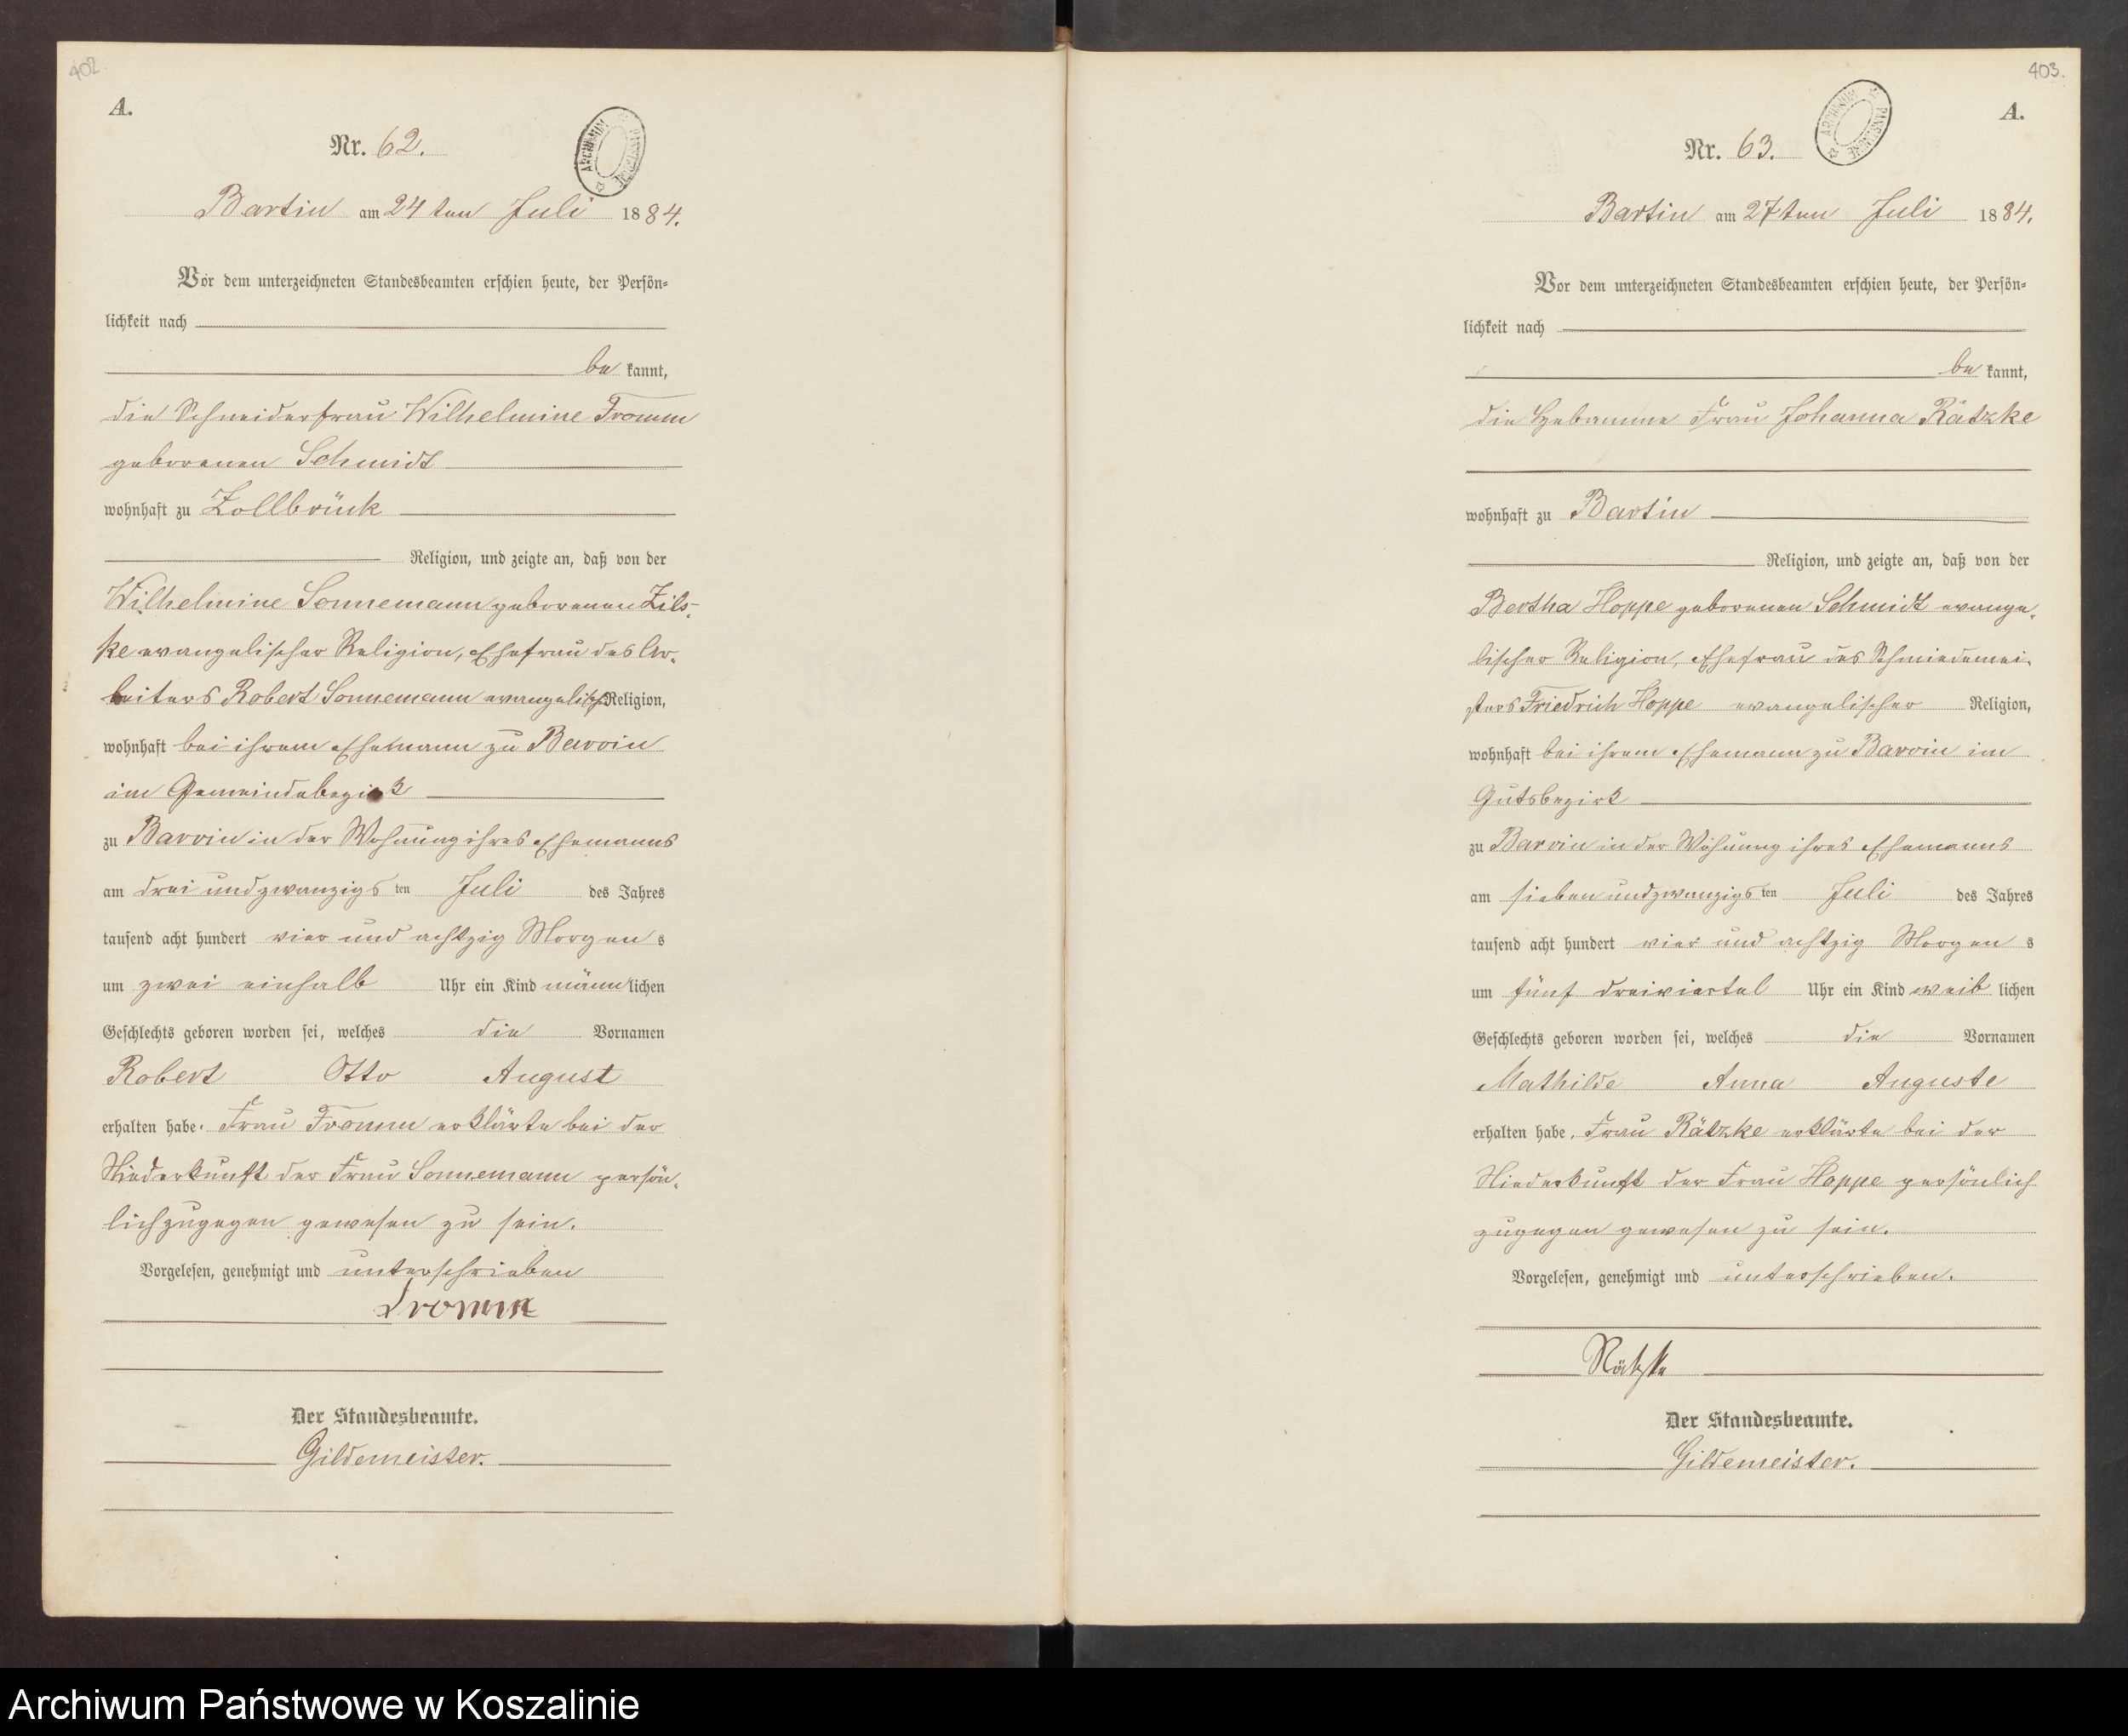 402
A.
Nr. 62.
ARCHIWUM PAŃSTWOWE
Bartin am 24ten Juli 1884.
Vor dem unterzeichneten Standesbeamten erschien heute, der Persön-
lichkeit nach
be kannt,
die Schneiderfrau Wilhelmine Fromm
geborenen Schmidt
wohnhaft zu Zollbrück
Religion, und zeigte an, daß von der
Wilhelmine Sonnemann geborenen Zils-
ke evangelischer Religion, Ehefrau des Ar-
beiters Robert Sonnemann evangelisch Religion,
wohnhaft bei ihrem Ehemann zu Barvin
im Gemeindebezirk
zu Barvin in der Wohnung ihres Ehemanns
am drei undzwanzigs ten Juli des Jahres
tausend acht hundert vier und achtzig Morgen s
um zwei einhalb Uhr ein Kind männ lichen
Geschlechts geboren worden sei, welches die Vornamen
Robert Otto August
erhalten habe. Frau Fromm erklärte bei der
Niederkunft der Frau Sonnemann persön-
lich zugegen gewesen zu sein.
Vorgelesen, genehmigt und unterschrieben
Fromm
Der Standesbeamte.
Gildemeister.
403.
A.
Nr. 63.
ARCHIWUM PAŃSTWOWE
Bartin am 27ten Juli 1884.
Vor dem unterzeichneten Standesbeamten erschien heute, der Persön-
lichkeit nach
be kannt,
die Hebamme Frau Johanna Rätzke
wohnhaft zu Bartin
Religion, und zeigte an, daß von der
Bertha Hoppe geborenen Schmidt evange-
lischer Religion, Ehefrau des Schmiedemei-
sters Friedrich Hoppe evangelischer Religion,
wohnhaft bei ihrem Ehemann zu Barvin im
Gutsbezirk
zu Barvin in der Wohnung ihres Ehemanns
am sieben undzwanzigs ten Juli des Jahres
tausend acht hundert vier und achtzig Morgen s
um fünf dreiviertel Uhr ein Kind weib lichen
Geschlechts geboren worden sei, welches die Vornamen
Mathilde Anna Auguste
erhalten habe. Frau Rätzke erklärte bei der
Niederkunft der Frau Hoppe persönlich
zugegen gewesen zu sein.
Vorgelesen, genehmigt und unterschrieben.
Rätzke
Der Standesbeamte.
Gildemeister.
Archiwum Państwowe w Koszalinie